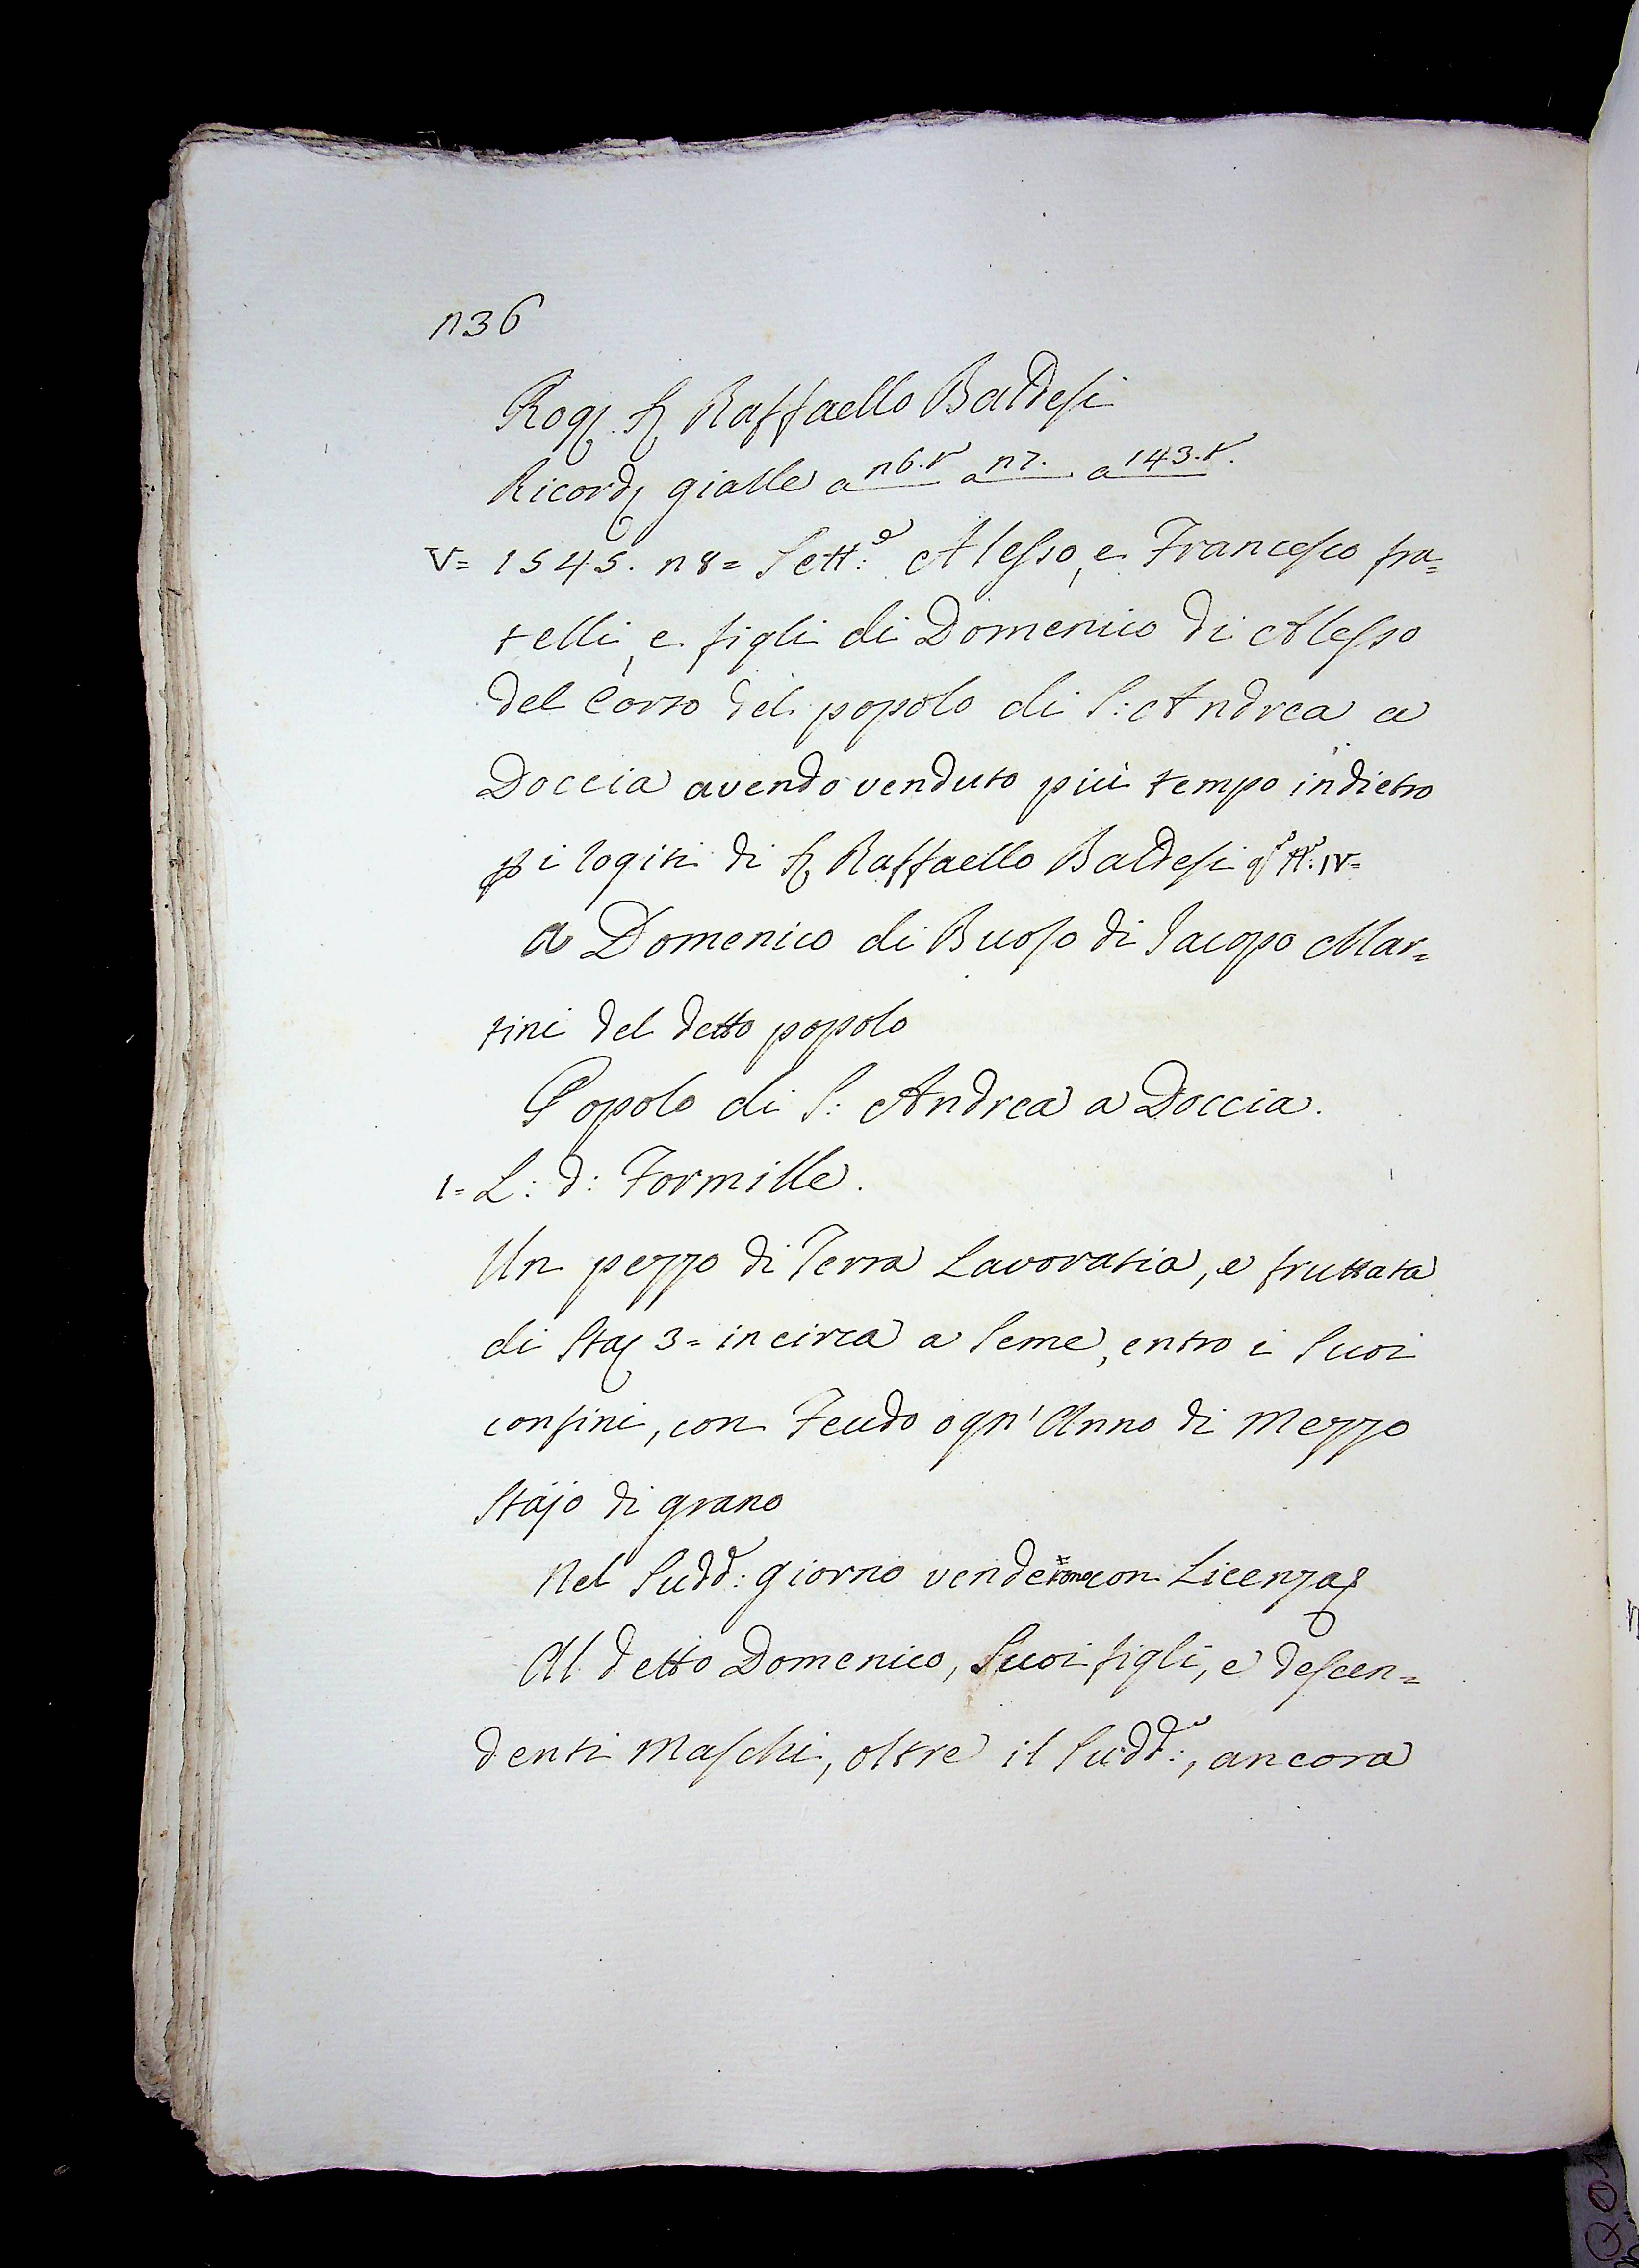 n36
Rog. Sr Raffaello Baldesi
Ricord. gialle a n6.t a n7. a 143.t.
V= 1545. n8= Sett:e Alesso, e Francesco fra=
telli, e figli di Domenico di Alesso
del Corso del popolo di S: Andrea a
Doccia avendo venduto più tempo indietro
p i rogiti di Sr Raffaello Baldesi
a Domenico di Buoso di Jacopo Mar=
tini del detto popolo
Popolo di S: Andrea a Doccia.
1= L: d: Formille.
Un pezzo di Terra Lavoratia, e fruttata
di Sta 3= in circa a Seme, entro i Suoi
confini, con Feudo ogn' Anno di Mezzo
Stajo di grano
Nel Sudd: giorno venderono con Licenza
Al detto Domenico, Suoi figli, e descen=
denti Maschi, oltre il Sudd:o, ancora